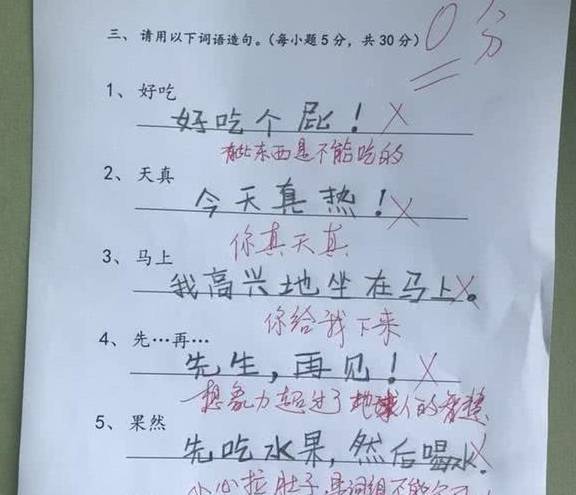 0分
三、请用以下词语造句。(每小题5分，共30分)
1、好吃
好吃个屁！
有些东西是不能吃的
2、天真
今天真热！
你真天真
3、马上
我高兴地坐在马上。
你给我下来
4、先…再…
先生，再见！
想象力超过了地球人的智慧
5、果然
先吃水果，然后喝水.
小心拉肚子,是词组不能分